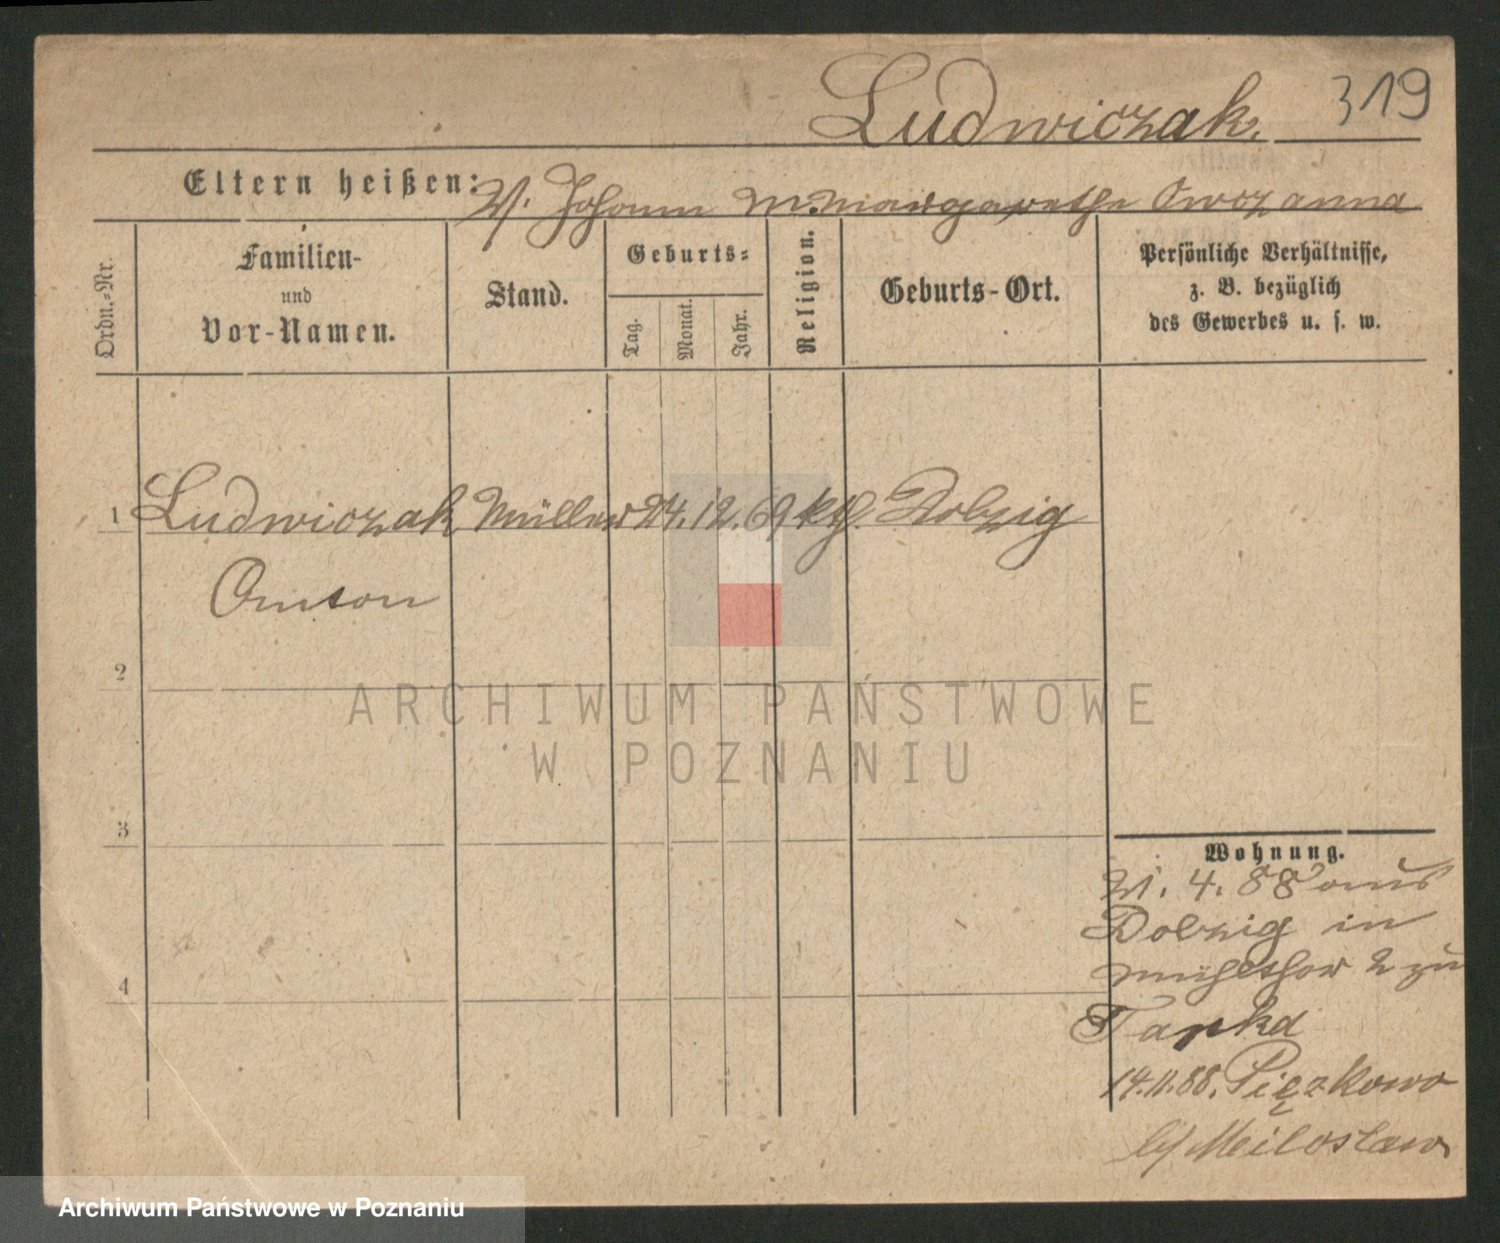 Ludwiczak. 319
Eltern heißen: V. Johann M. Margarethe Owczanna
Ordn.-Nr.
Familien-
und
Vor-Namen.
Stand.
Geburts-
Tag.
Monat.
Jahr.
Religion.
Geburts-Ort.
Persönliche Verhältnisse,
z. B. bezüglich
des Gewerbes u. s. w.
1 Ludwiczak Müller 24. 12. 69 kth. Dolzig
Anton
2
ARCHIWUM PAŃSTWOWE
W POZNANIU
3
Wohnung.
4. 88 aus
Dolzig in
Mühlthor 2 zu
4
14.11.88. Pięzkowo
b/ Miloslaw
Archiwum Państwowe w Poznaniu